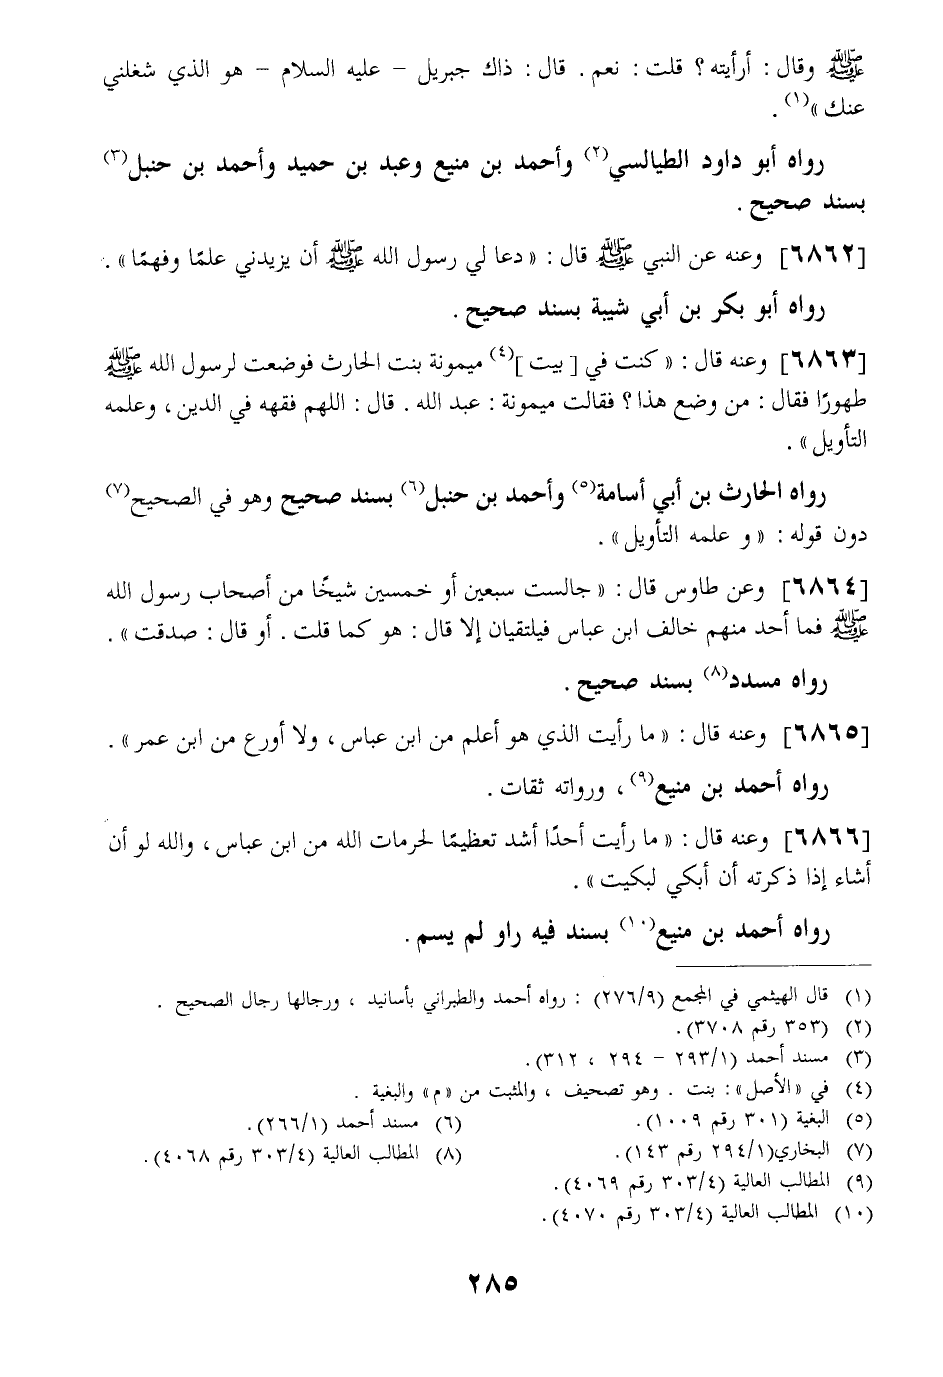 ﷺ وقال : أرأيته ؟ قلت : نعم . قال : ذاك جبريل – عليه السلام – هو الذي شغلني
عنك »(١) .
رواه أبو داود الطيالسي(٢) وأحمد بن منيع وعبد بن حميد وأحمد بن حنبل(٣)
بسند صحيح .
[٦٨٦٢] وعنه عن النبي ﷺ قال : « دعا لي رسول الله ﷺ أن يزيدني علمًا وفهمًا » .
رواه أبو بكر بن أبي شيبة بسند صحيح .
[٦٨٦٣] وعنه قال : « كنت في [ بيت ](٤) ميمونة بنت الحارث فوضعت لرسول الله ﷺ
طهورًا فقال : من وضع هذا ؟ فقالت ميمونة : عبد الله . قال : اللهم فقهه في الدين ، وعلمه
التأويل » .
رواه الحارث بن أبي أسامة(٥) وأحمد بن حنبل(٦) بسند صحيح وهو في الصحيح(٧)
دون قوله : « و علمه التأويل » .
[٦٨٦٤] وعن طاوس قال : « جالست سبعين أو خمسين شيخًا من أصحاب رسول الله
ﷺ فما أحد منهم خالف ابن عباس فيلتقيان إلا قال : هو كما قلت . أو قال : صدقت » .
رواه مسدد(٨) بسند صحيح .
[٦٨٦٥] وعنه قال : « ما رأيت الذي هو أعلم من ابن عباس ، ولا أورع من ابن عمر » .
رواه أحمد بن منيع(٩) ، ورواته ثقات .
[٦٨٦٦] وعنه قال : « ما رأيت أحدًا أشد تعظيمًا لحرمات الله من ابن عباس ، والله لو أن
أشاء إذا ذكرته أن أبكي لبكيت » .
رواه أحمد بن منيع(١٠) بسند فيه راو لم يسم .
(١) قال الهيثمي في المجمع (٢٧٦/٩) : رواه أحمد والطبراني بأسانيد ، ورجالها رجال الصحيح .
(٢) (٣٥٣ رقم ٣٧٠٨).
(٣) مسند أحمد (٢٩٣/١ – ٢٩٤ ، ٣١٢).
(٤) في «الأصل»: بنت . وهو تصحيف ، والمثبت من «م» والبغية .
(٥) البغية (٣٠١ رقم ١٠٠٩). (٦) مسند أحمد (٢٦٦/١).
(٧) البخاري(٢٩٤/١ رقم ١٤٣). (٨) المطالب العالية (٣٠٣/٤ رقم ٤٠٦٨).
(٩) المطالب العالية (٣٠٣/٤ رقم ٤٠٦٩).
(١٠) المطالب العالية (٣٠٣/٤ رقم ٤٠٧٠).
٢٨٥